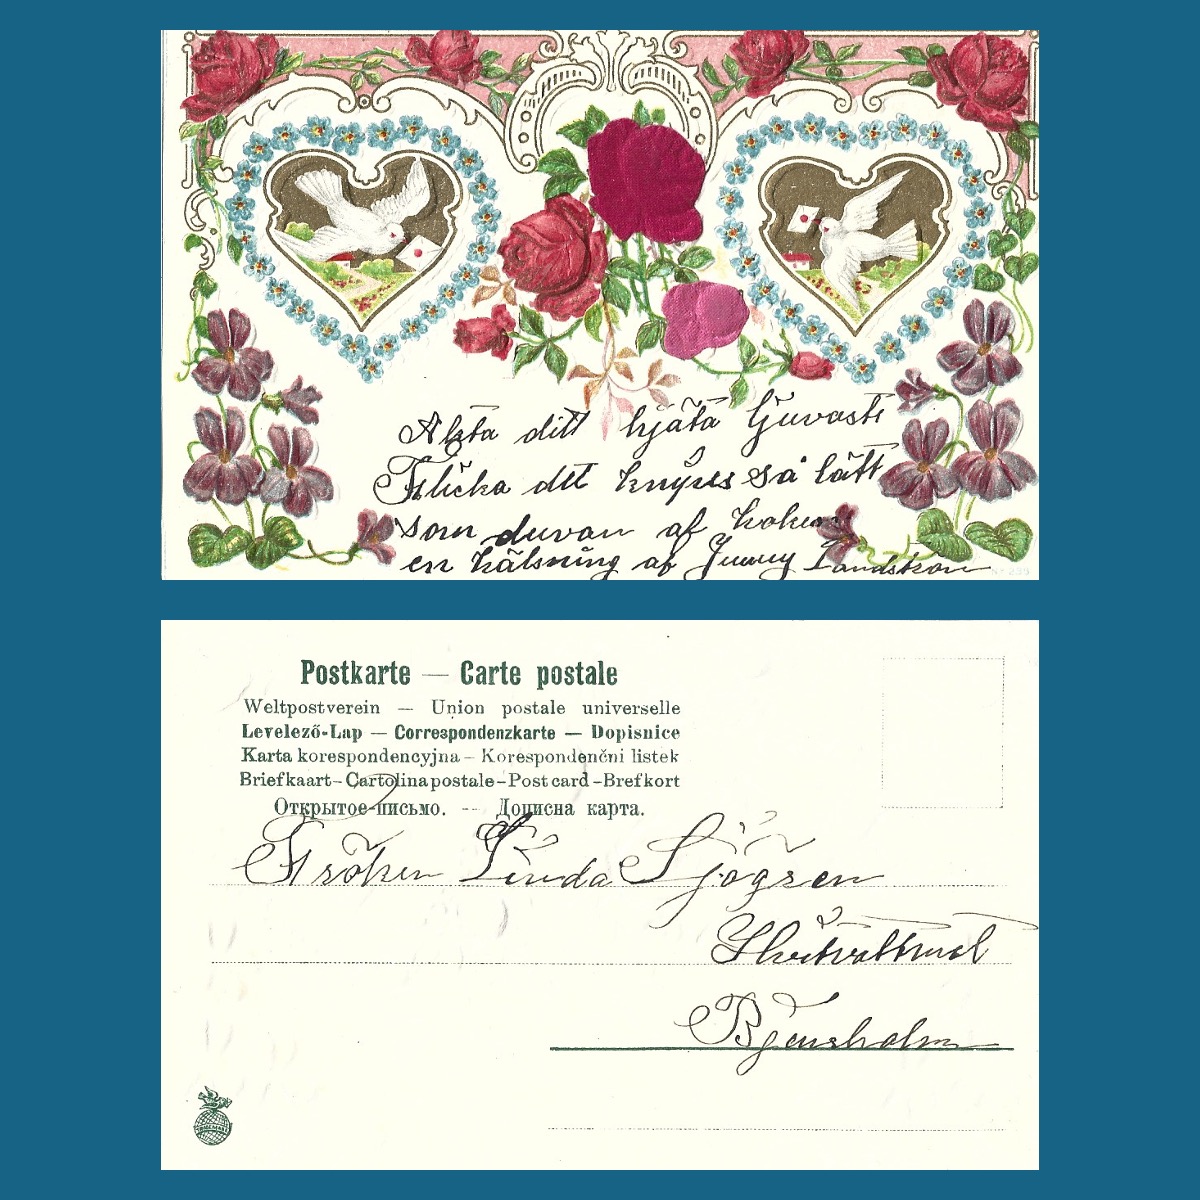 Akta ditt hjäta ljuvasti
Flicka dtt knyps så lätt
som duvan af höken
en hälsning af Jenny Landström
N° 239
Postkarte — Carte postale
Weltpostverein — Union postale universelle
Levelező-Lap — Correspondenzkarte — Dopisnice
Karta korespondencyjna – Korespondenčni listek
Briefkaart – Cartolina postale – Post card – Brefkort
Открытое-письмо. -- Дописна карта.
Fröken Linda Sjögren
Bjensholm